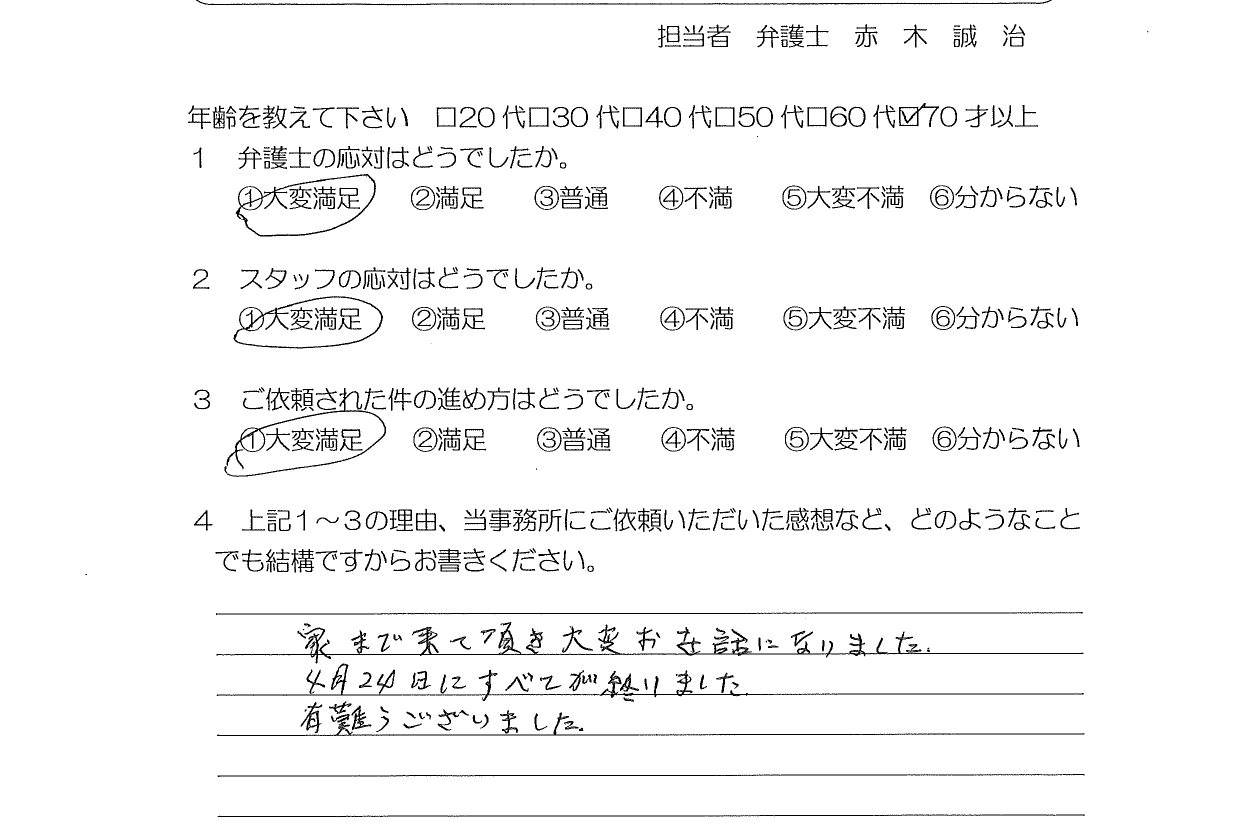 担当者　弁護士　赤　木　誠　治
年齢を教えて下さい　□20 代□30 代□40 代□50 代□60 代☑70 才以上
１　弁護士の応対はどうでしたか。
①大変満足　②満足　③普通　④不満　⑤大変不満　⑥分からない
２　スタッフの応対はどうでしたか。
①大変満足　②満足　③普通　④不満　⑤大変不満　⑥分からない
３　ご依頼された件の進め方はどうでしたか。
①大変満足　②満足　③普通　④不満　⑤大変不満　⑥分からない
４　上記１～３の理由、当事務所にご依頼いただいた感想など、どのようなこと
でも結構ですからお書きください。
家まで来て頂き大変お世話になりました.
4月24日にすべてが終りました.
有難うございました.